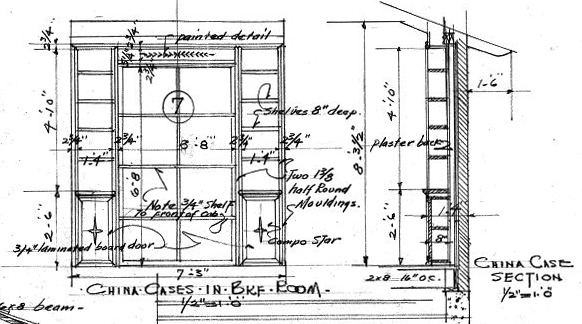 2¾"
2¾"
painted detail
2¾"
4'-10"
7
Shelves 8" deep.
2¾"
2¾"
3'-8"
2¾"
2¾"
1'-4"
1'-4"
6'-8
Two 1⅜
half Round
Mouldings.
Note ¾" Shelf
To front of cab.
2'-6"
¾" laminated board door
Compo Star
7'-3"
CHINA-CASES-IN-BKF-ROOM-
½"=1'-0"
6x8 beam-
8'-3½"
4'-10"
1'-6"
plaster back
2'-6"
8"
2x8-16" O.C.
CHINA CASE
SECTION
½"=1'-0"